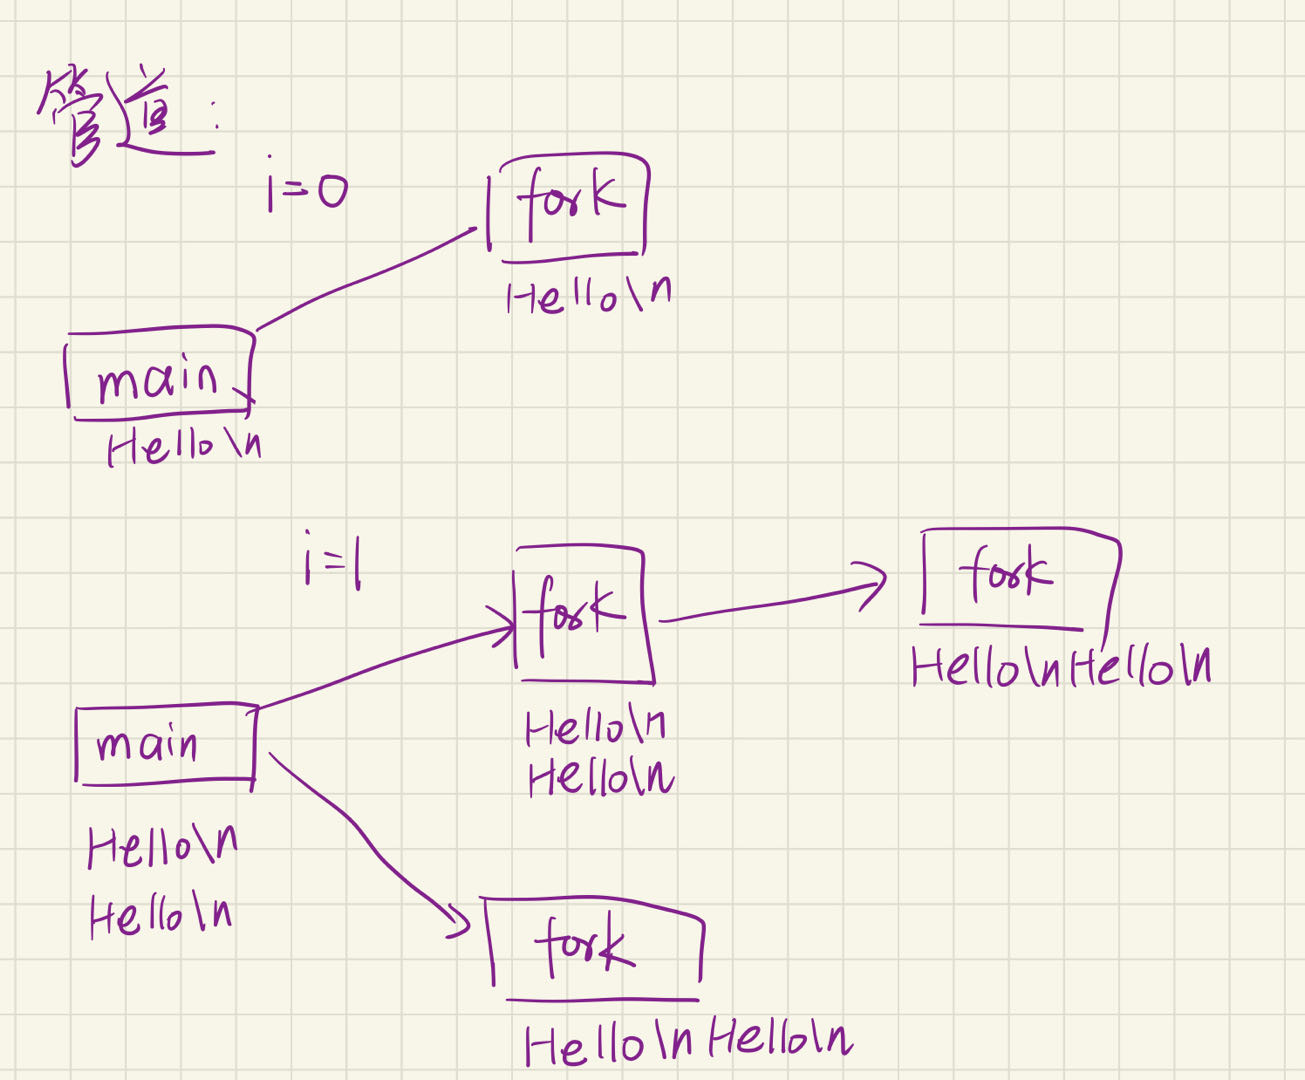 管道:
i=0
fork
Hello\n
main
Hello\n
i=1
fork
fork
Hello\nHello\n
Hello\n
Hello\n
main
Hello\n
Hello\n
fork
Hello\n Hello\n